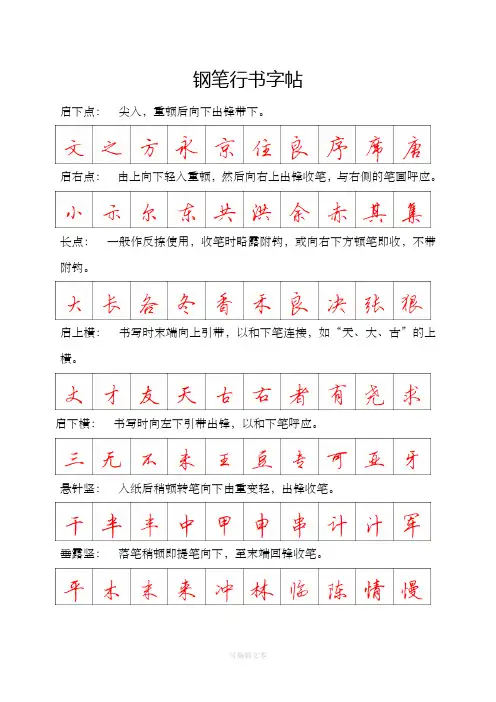 钢笔行书字帖
启下点： 尖入，重顿后向下出锋带下。
文 之 方 永 京 住 良 序 席 唐
启右点： 由上向下轻入重顿，然后向右上出锋收笔，与右侧的笔画呼应。
小 示 尔 东 共 洪 余 赤 其 集
长点： 一般作反捺使用，收笔时略露附钩，或向右下方顿笔即收，不带
附钩。
大 长 各 冬 香 禾 良 决 张 狠
启上横： 书写时末端向上引带，以和下笔连接，如“天、大、古”的上
横。
丈 才 友 天 古 右 者 有 尧 求
启下横： 书写时向左下引带出锋，以和下笔呼应。
三 无 不 来 王 豆 专 可 亚 牙
悬针竖： 入纸后稍顿转笔向下由重变轻，出锋收笔。
干 半 丰 中 甲 申 串 计 汁 军
垂露竖： 落笔稍顿即提笔向下，至末端回锋收笔。
平 木 末 来 冲 林 临 陈 情 慢
可编辑文本